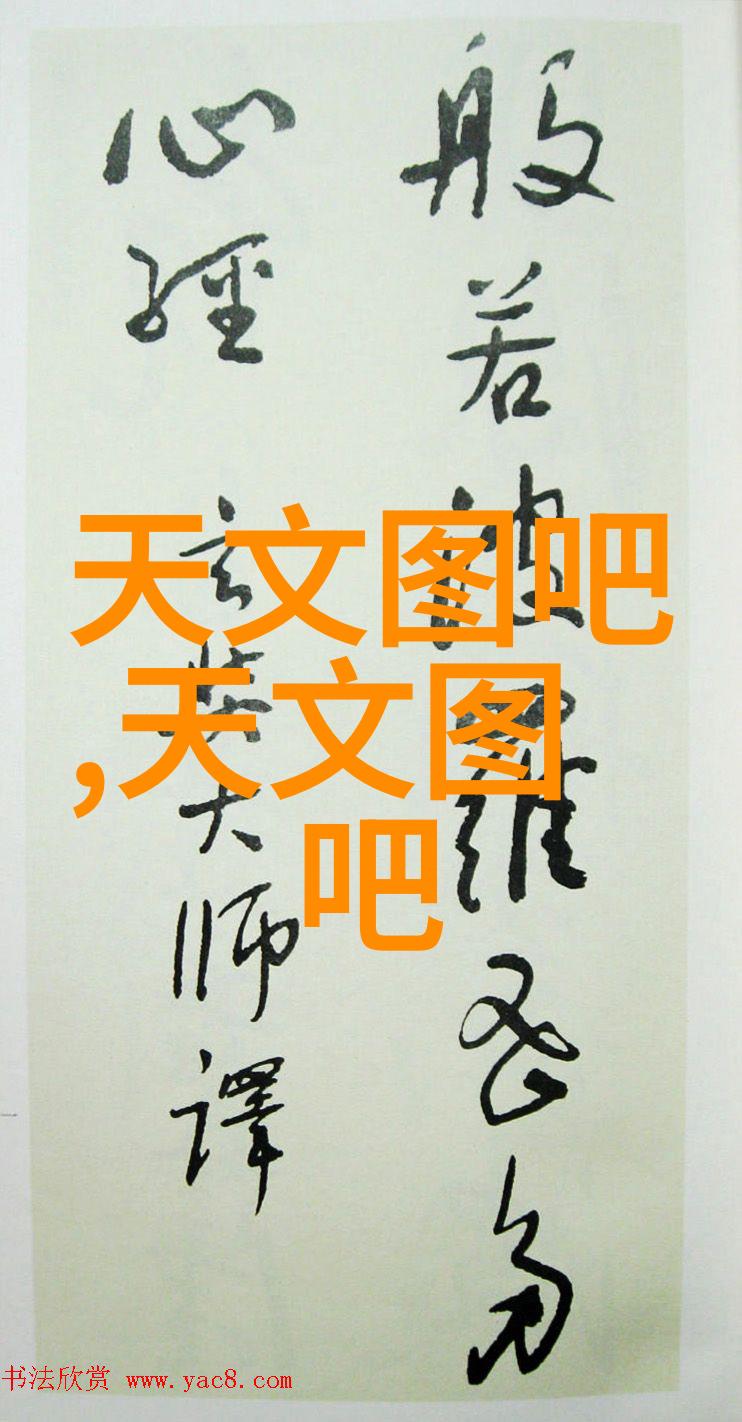 般若波羅蜜多
心經 玄奘大師譯
天文图吧
,天文图
吧
书法欣赏 www.yac8.com